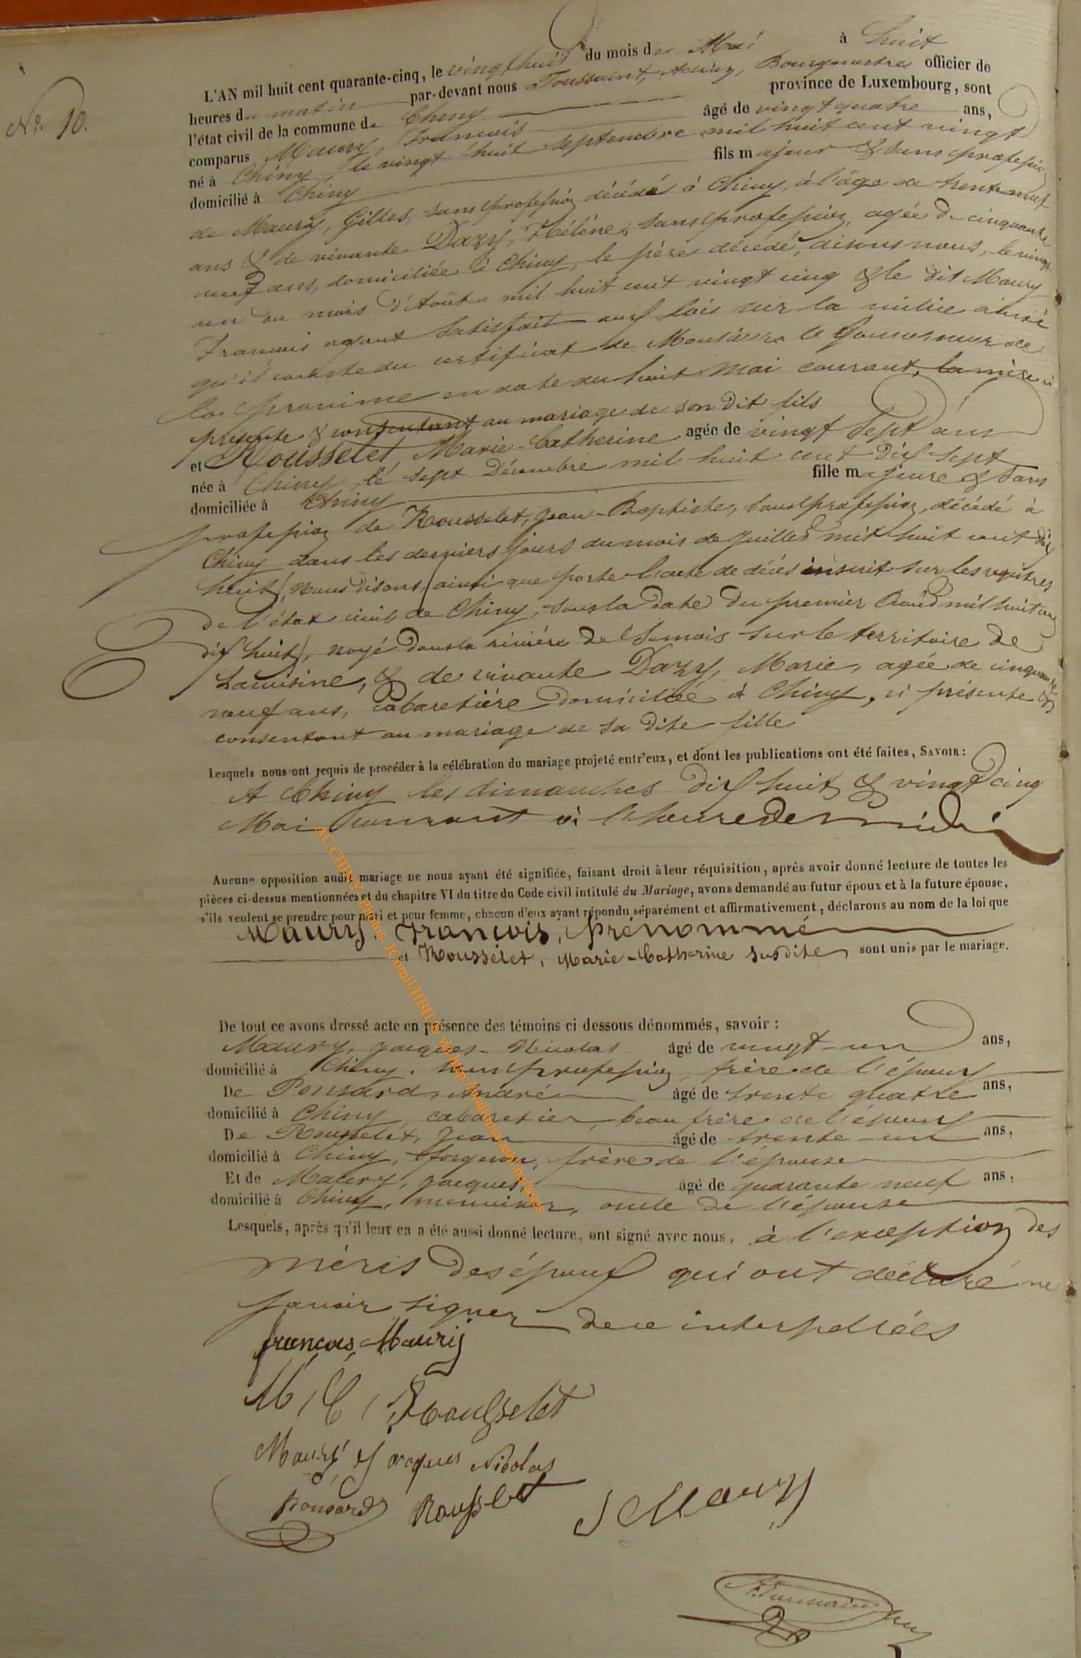 No. 10.
L'AN mil huit cent quarante-cinq, le vingt huit du mois de Mai à huit
heures du matin par-devant nous Toussaint, Bourgmestre officier de
l'état civil de la commune de Chiny province de Luxembourg, sont
comparus Maury, Francois âgé de vingt quatre ans,
né à Chiny, le vingt huit septembre mil huit cent vingt
domicilié à Chiny fils majeur & sans profession
de Maury, Gilles, sans profession décédé à Chiny, à l'âge de trente neuf
ans & de vivante Dazy, Hélène, sans profession, agée de cinquante
neuf ans, domiciliée à Chiny, le père décédé, disons nous, le vingt
un du mois d'Août mil huit cent vingt cinq & le dit Maury
Francois ayant satisfait aux lois sur la milice ainsi
qu'il conste du certificat de Monsieur le Gouverneur de
la province en date du huit Mai courant, la mère ci
présente & consentant au mariage de son dit fils
et Rousselet Marie-Catherine agée de vingt sept ans
née à Chiny, le sept Décembre mil huit cent dix sept
domiciliée à Chiny fille majeure & sans
profession de Rousselet, Jean-Baptiste, sans profession, décédé à
Chiny dans les derniers jours du mois de Juillet mil huit cent dix
huit (nous disons ainsi que porte l'acte de décès inscrit sur les registres
de l'état civil de Chiny, sous la date du premier Août mil huit cent
dix huit), noyé dans la rivière de Semois sur le territoire de
Lacuisine, & de vivante Dazy, Marie, agée de cinquante
neuf ans, cabaretière domiciliée à Chiny, ci présente &
consentant au mariage de sa dite fille
Lesquels nous ont requis de procéder à la célébration du mariage projeté entr'eux, et dont les publications ont été faites, SAVOIR:
A Chiny les dimanches dix huit & vingt cinq
Mai courant à l'heure de midi
Aucune opposition audit mariage ne nous ayant été signifiée, faisant droit à leur réquisition, après avoir donné lecture de toutes les
pièces ci-dessus mentionnées et du chapitre VI du titre du Code civil intitulé du Mariage, avons demandé au futur époux et à la future épouse,
s'ils veulent se prendre pour mari et pour femme, chacun d'eux ayant répondu séparément et affirmativement, déclarons au nom de la loi que
Maury, Francois, prénommé
et Rousselet, Marie-Catherine susdite sont unis par le mariage.
De tout ce avons dressé acte en présence des témoins ci dessous dénommés, savoir :
Maury, Jacques-Nicolas âgé de vingt-un ans,
domicilié à Chiny, sans profession, frère de l'époux
De Ponsard, André âgé de trente quatre ans,
domicilié à Chiny, cabaretier, beau frère de l'époux
De Rousselet, Jean âgé de trente-un ans,
domicilié à Chiny, frère de l'épouse
Et de Maury, Jacques, âgé de quarante neuf ans,
domicilié à Chiny, oncle de l'épouse
Lesquels, après qu'il leur en a été aussi donné lecture, ont signé avec nous, à l'exception des
mères des époux qui ont déclaré ne
savoir signer de ce interpellées
francois Maurij
M C Rousselet
Maury Jacques Nicolas
Ponsard Rousselet J Maury
Toussaint